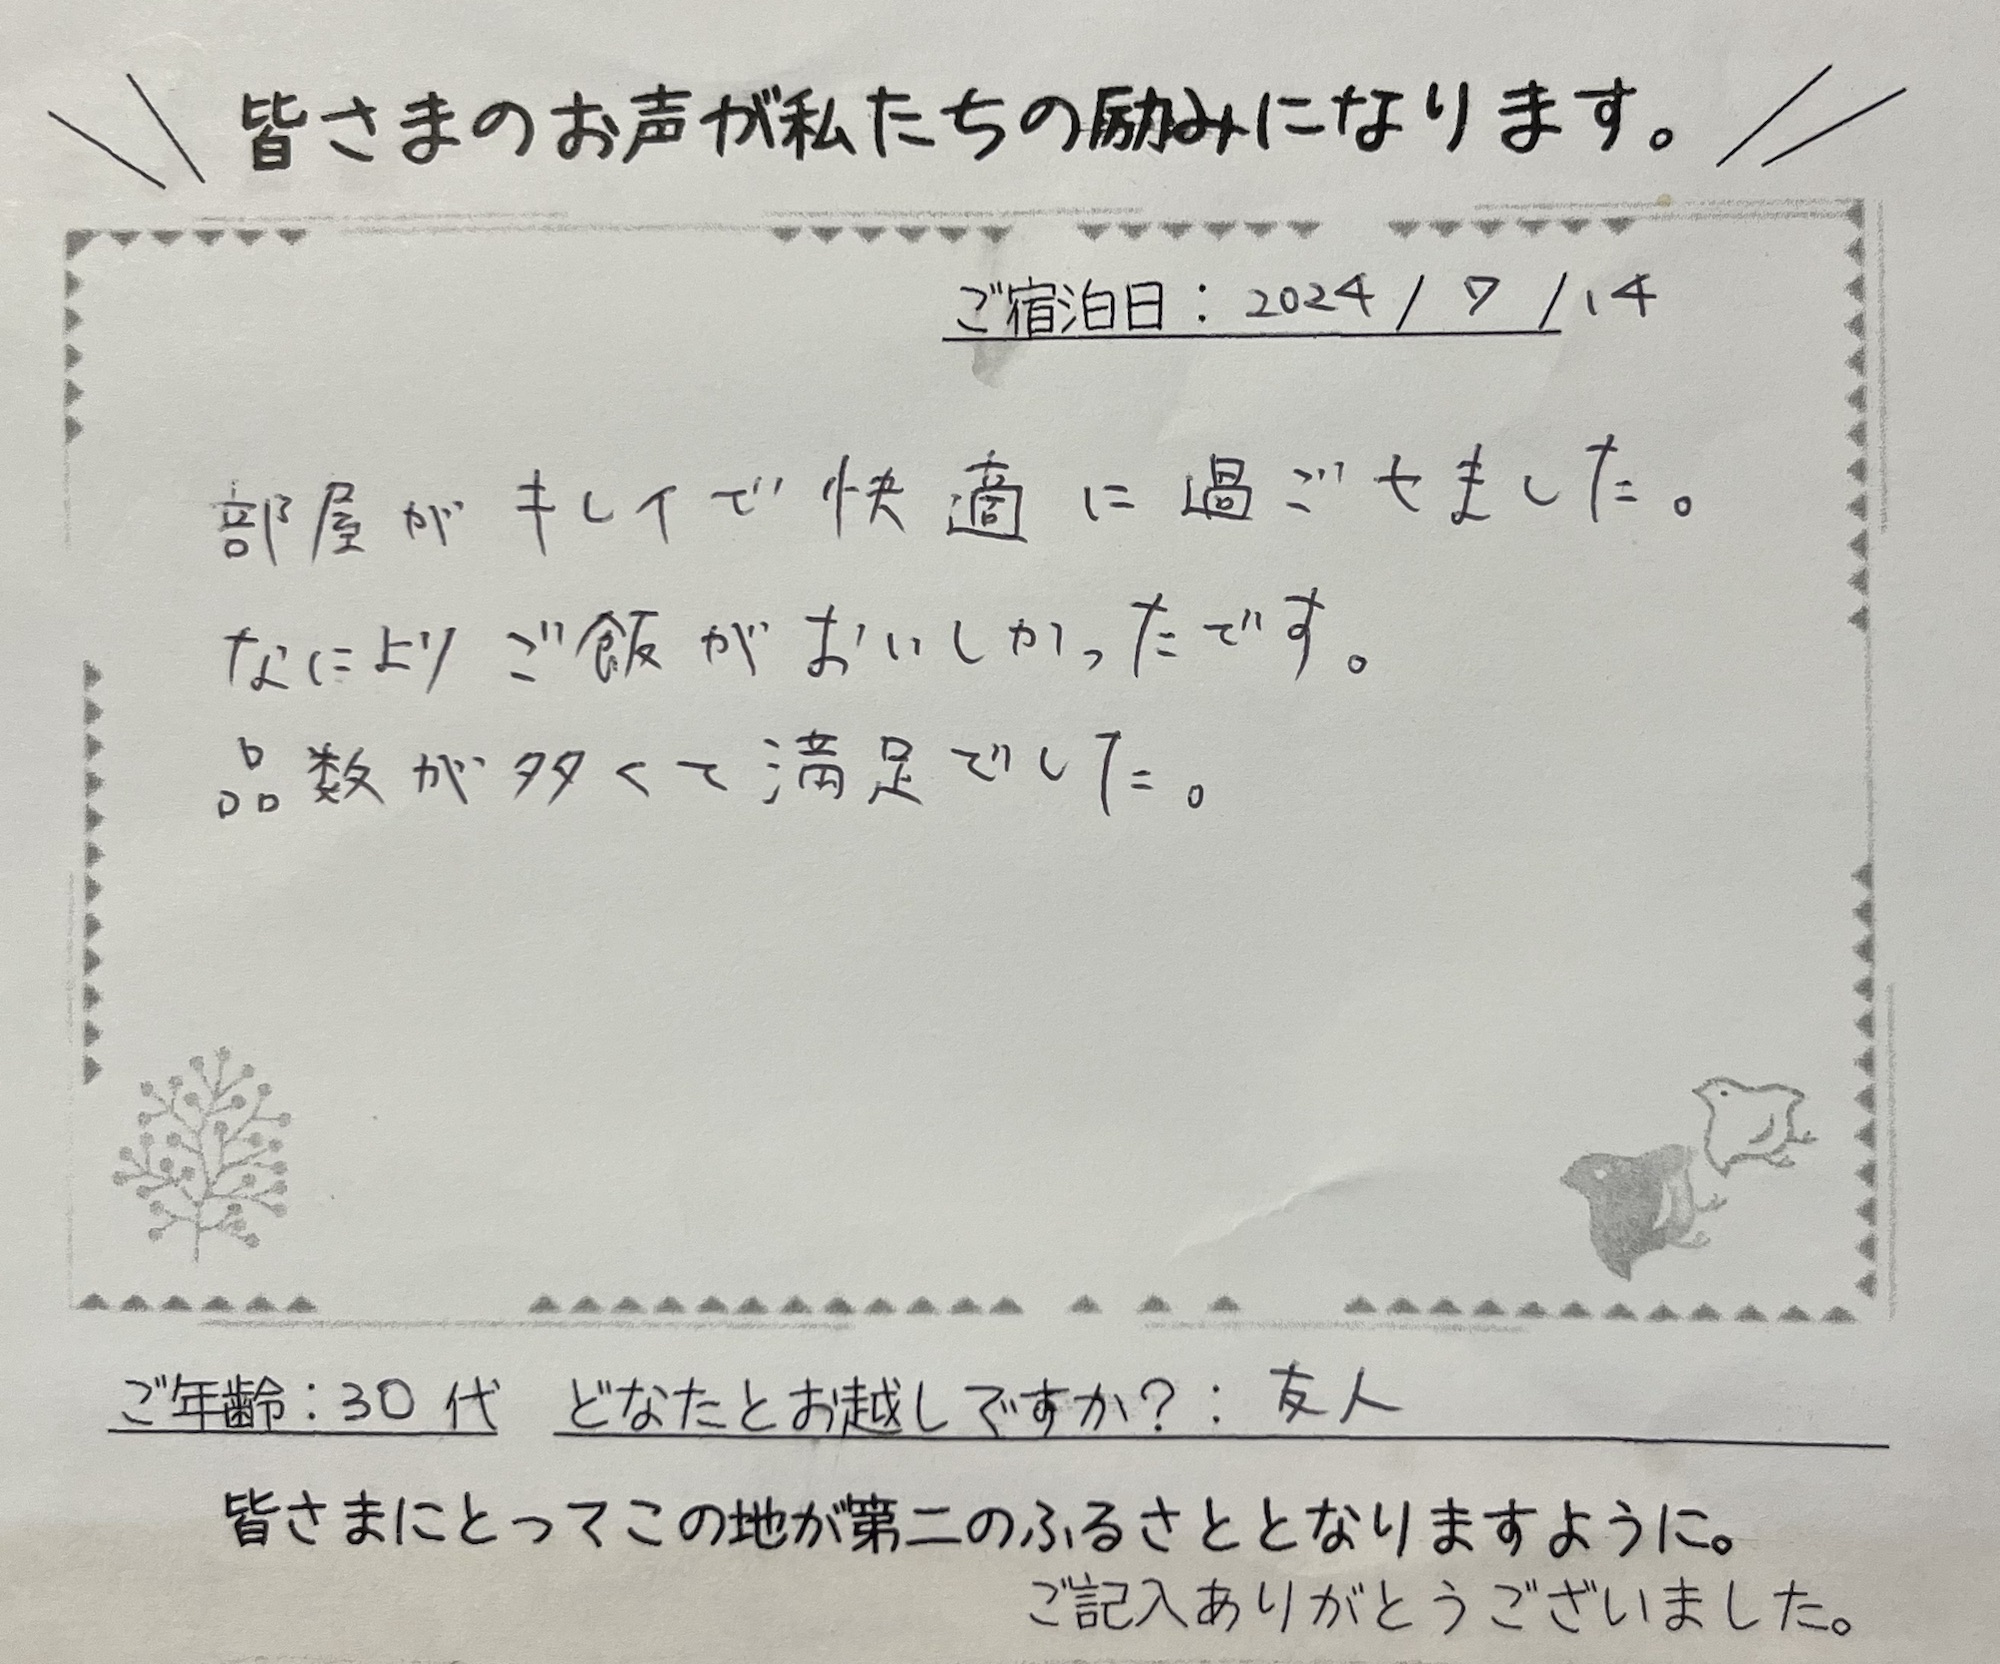 皆さまのお声が私たちの励みになります。
ご宿泊日：2024/7/14
部屋がキレイで快適に過ごせました。
なにより ご飯がおいしかったです。
品数が多くて満足でした。
ご年齢：30代 どなたとお越しですか？：友人
皆さまにとってこの地が第二のふるさととなりますように。
ご記入ありがとうございました。